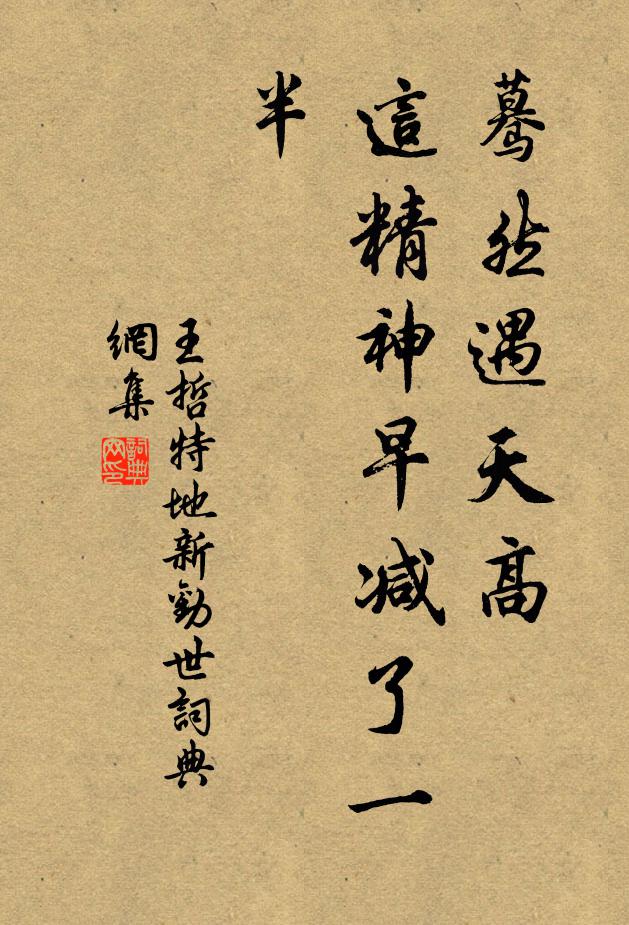 驀然遇天高
這精神早減了一
半
王哲特地新勸世詞典
網集
詞典
网印